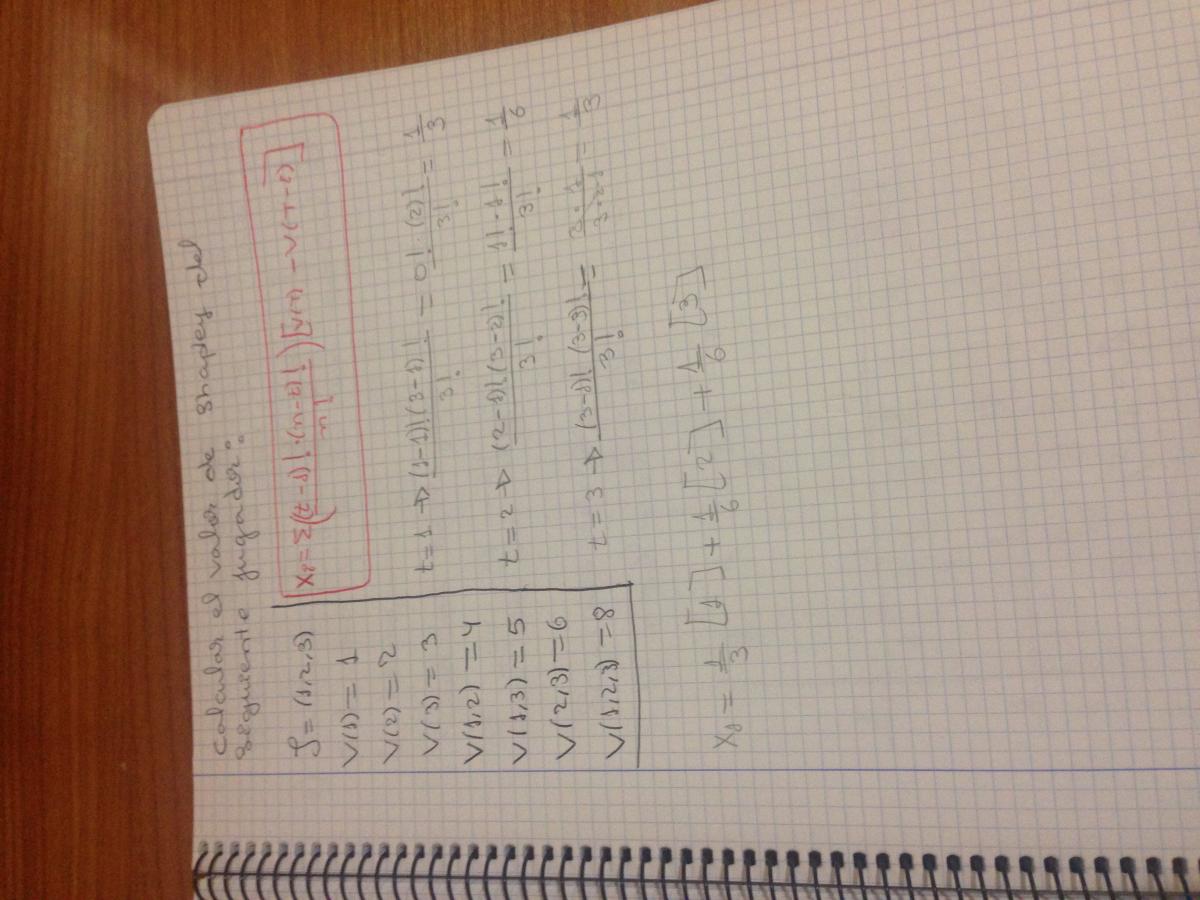 Calcular el valor de Shapley del
seguiente jugador:
J = (1,2,3)
V(1) = 1
V(2) = 2
V(3) = 3
V(1,2) = 4
V(1,3) = 5
V(2,3) = 6
V(1,2,3) = 8
X₁ = Σ((t-1)!·(n-t)!/n!)[V(T) - V(T-i)]
t=1 → (1-1)!(3-1)!/3! = 0!·(2)!/3! = 1/3
t=2 → (2-1)!(3-2)!/3! = 1!·1!/3! = 1/6
t=3 → (3-1)!(3-3)!/3! = 2·1/3·2·1 = 1/3
X₁ = 1/3 [1] + 1/6 [2] + 1/6 [3]